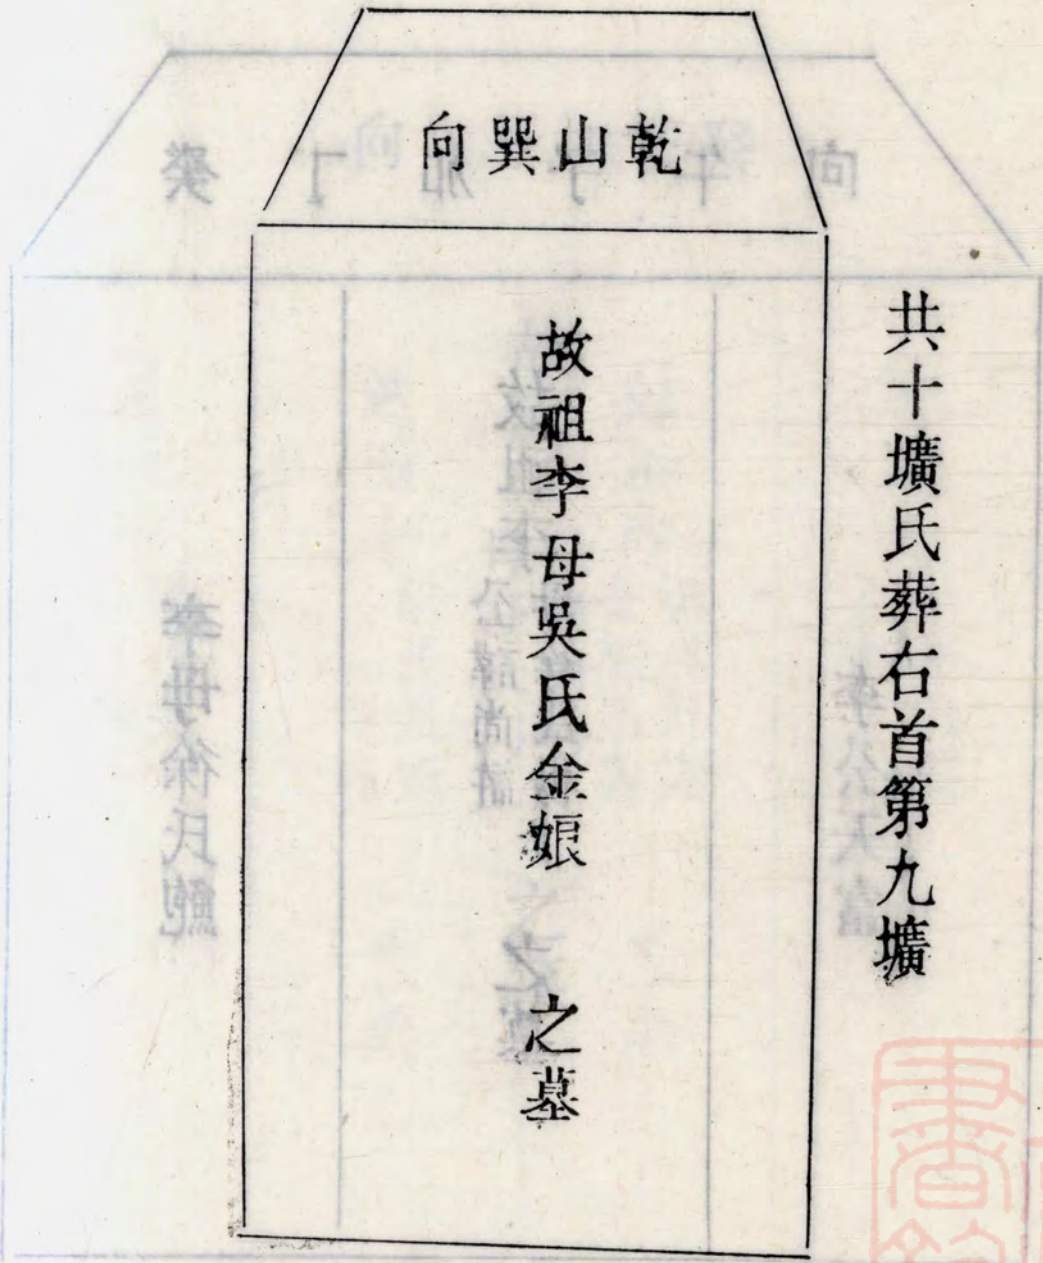 乾山巽向
共十壙氏葬右首第九壙
故祖李母吳氏金娘　之墓